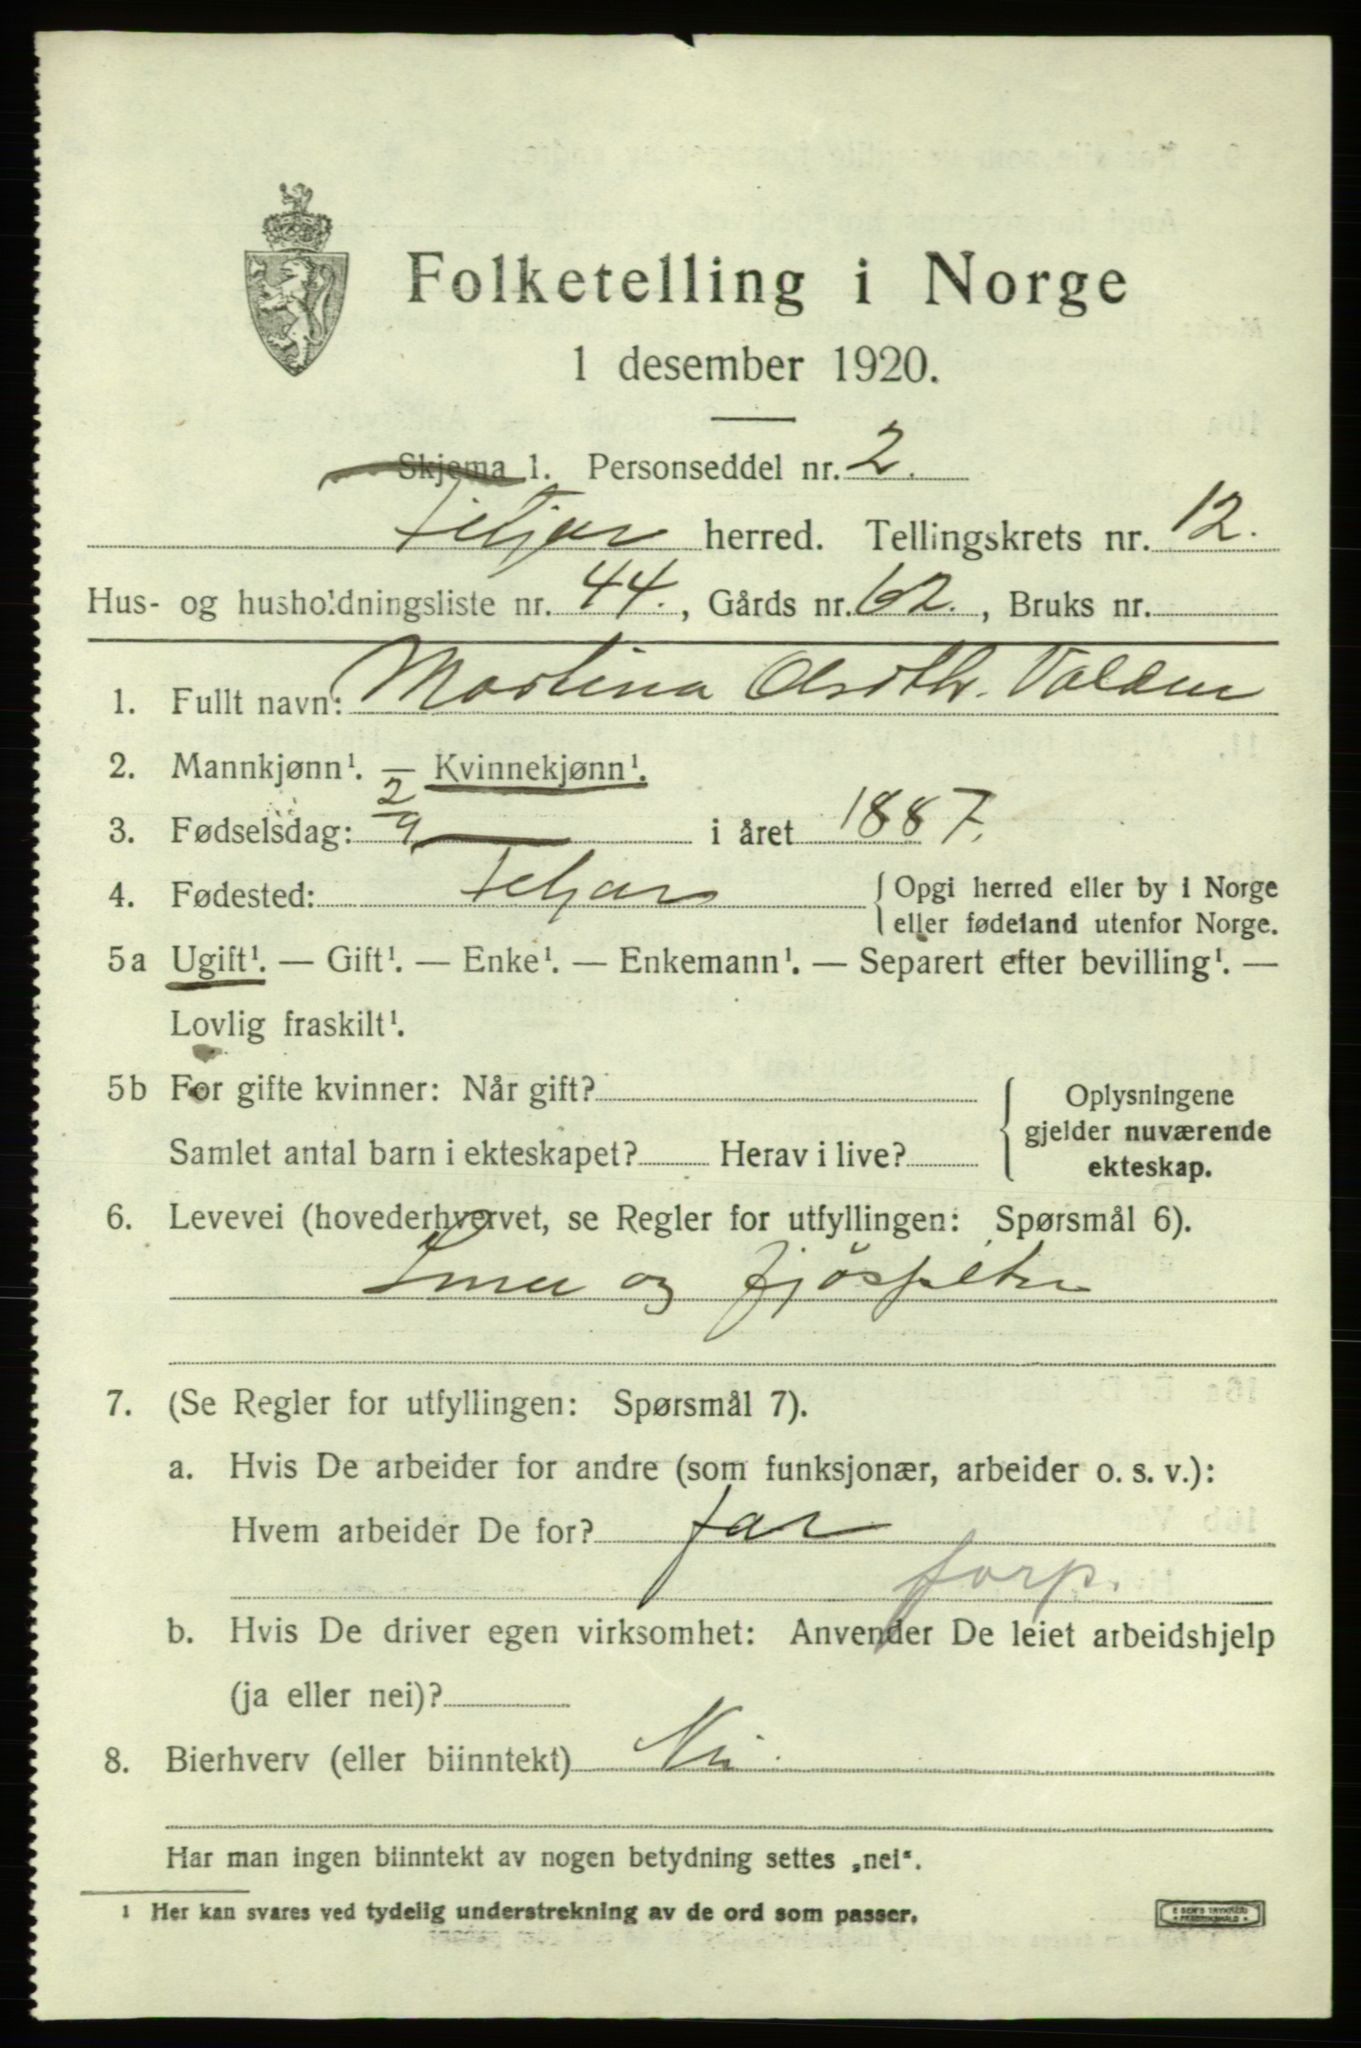 Folketelling i Norge
1 desember 1920.
Skjema 1. Personseddel nr. 2.
Fitjar herred. Tellingskrets nr. 12.
Hus- og husholdningsliste nr. 44., Gårds nr. 62., Bruks nr.
1. Fullt navn: Martina Olsdtr.
2. Mannkjønn¹. — Kvinnekjønn¹.
3. Fødselsdag: 2/9 i året 1887.
4. Fødested: Fitjar { Opgi herred eller by i Norge
eller fødeland utenfor Norge.
5a Ugift¹. — Gift¹. — Enke¹. — Enkemann¹. — Separert efter bevilling¹. —
Lovlig fraskilt¹.
5b For gifte kvinner: Når gift? { Oplysningene
gjelder nuværende
Samlet antal barn i ekteskapet? Herav i live? ekteskap.
6. Levevei (hovederhvervet, se Regler for utfyllingen: Spørsmål 6).
og
7. (Se Regler for utfyllingen: Spørsmål 7).
a. Hvis De arbeider for andre (som funksjonær, arbeider o. s. v.):
Hvem arbeider De for? far
forp.
b. Hvis De driver egen virksomhet: Anvender De leiet arbeidshjelp
(ja eller nei)?
8. Bierhverv (eller biinntekt) Nei.
Har man ingen biinntekt av nogen betydning settes „nei“.
¹ Her kan svares ved tydelig understrekning av de ord som passer.